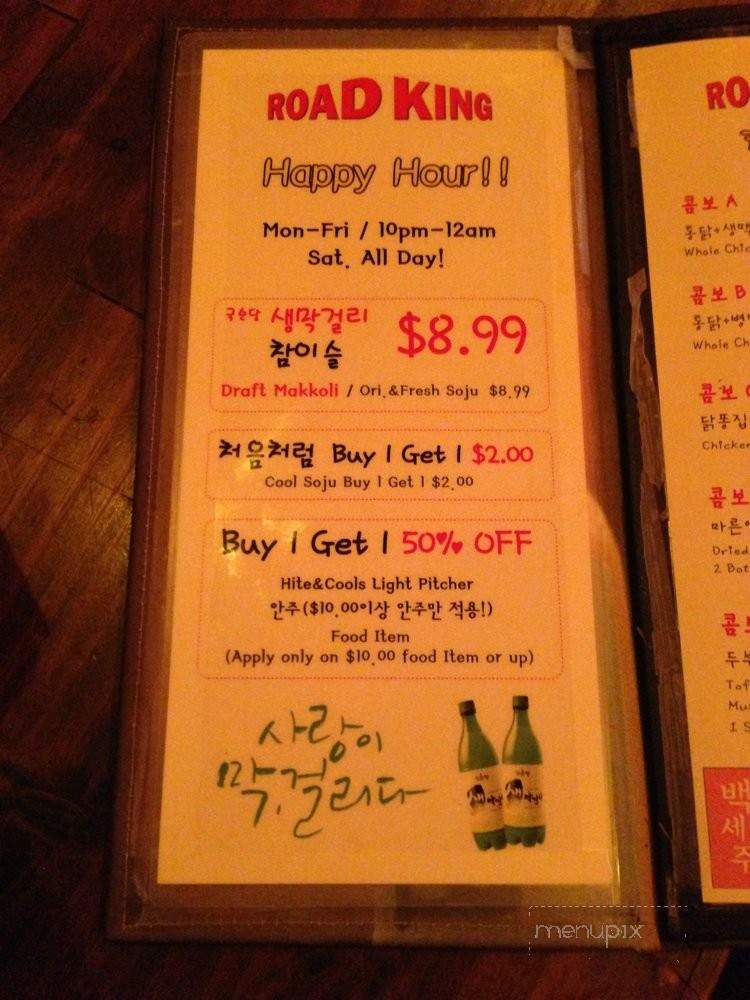 ROAD KING
Happy Hour!!
Mon-Fri / 10pm-12am
Sat. All Day!
국순당 생막걸리
참이슬
$8.99
Draft Makkoli / Ori.&Fresh Soju $8.99
처음처럼 Buy 1 Get 1 $2.00
Cool Soju Buy 1 Get 1 $2.00
Buy 1 Get 1 50% OFF
Hite&Cools Light Pitcher
안주($10.00이상 안주만 적용!)
Food Item
(Apply only on $10.00 food Item or up)
사랑이
막, 걸리다
RO
콤보 A
통닭+생맥
Whole Chic
콤보 B
통닭+병
Whole Ch
콤보
닭똥집
Chicken
콤보
마른
Dried
2 Bot
콤
두부
Tof
Mu
1 S
백
세
주
menupix